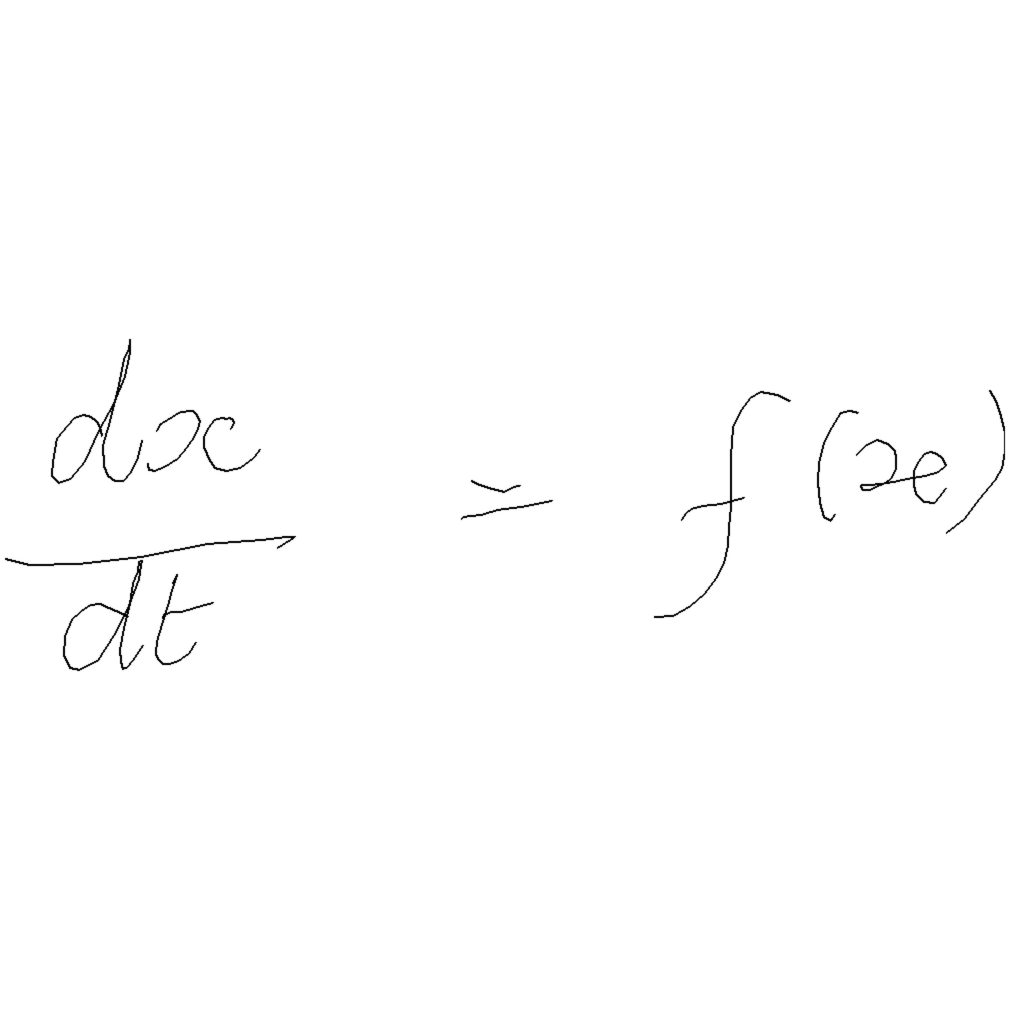 \frac{dx}{dt} = f(x)